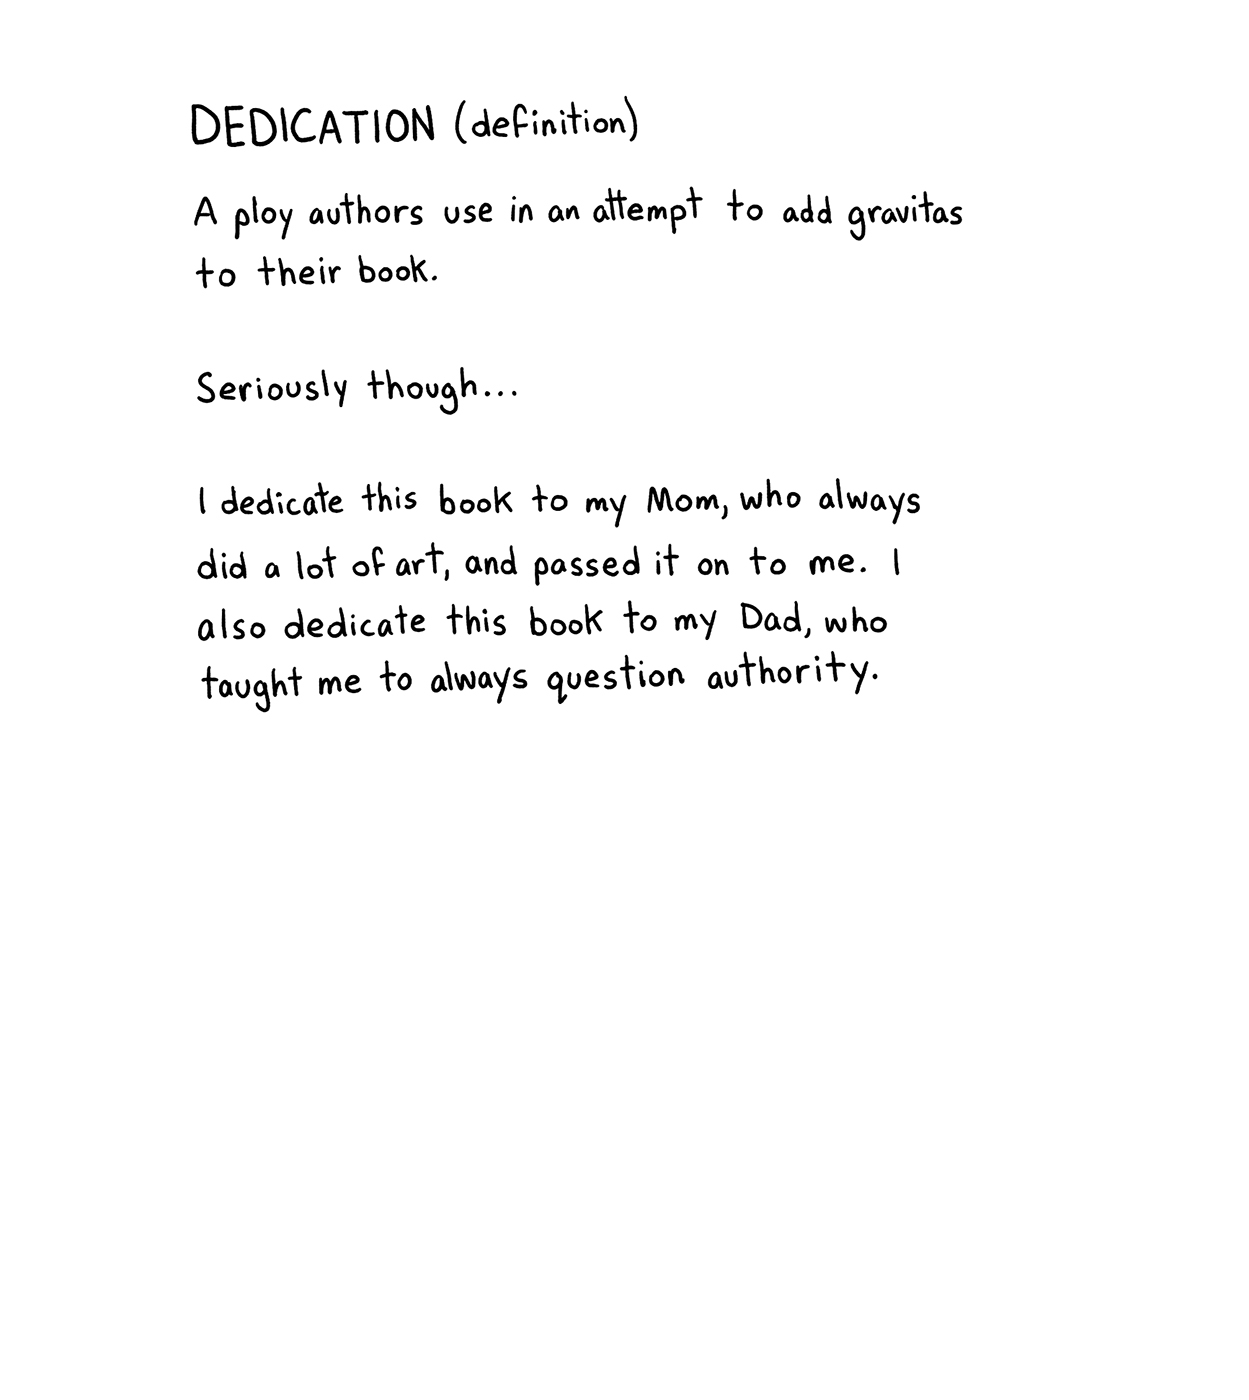 DEDICATION (definition)
A ploy authors use in an attempt to add gravitas
to their book.
Seriously though...
I dedicate this book to my Mom, who always
did a lot of art, and passed it on to me. I
also dedicate this book to my Dad, who
taught me to always question authority.